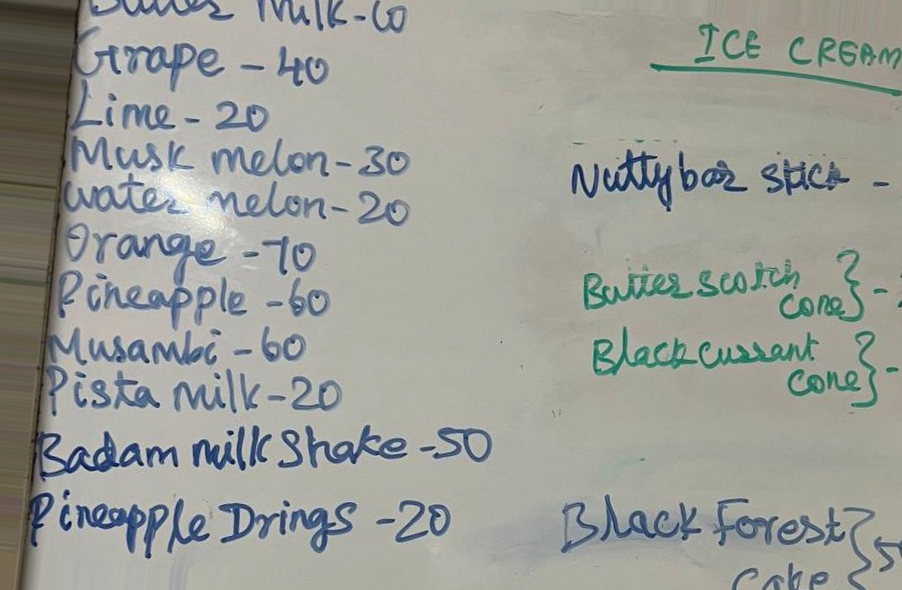 Milk-60
Grape - 40
Lime - 20
Musk melon-30
water melon-20
Orange -70
Pineapple -60
Musambi -60
Pista Milk-20
Badam milk Shake -50
Pineapple Drings -20
ICE CREAM
Nuttybar stick -
Butter scotch
cone} -
Blackcurrant
cone} -
Black Forest
Cake